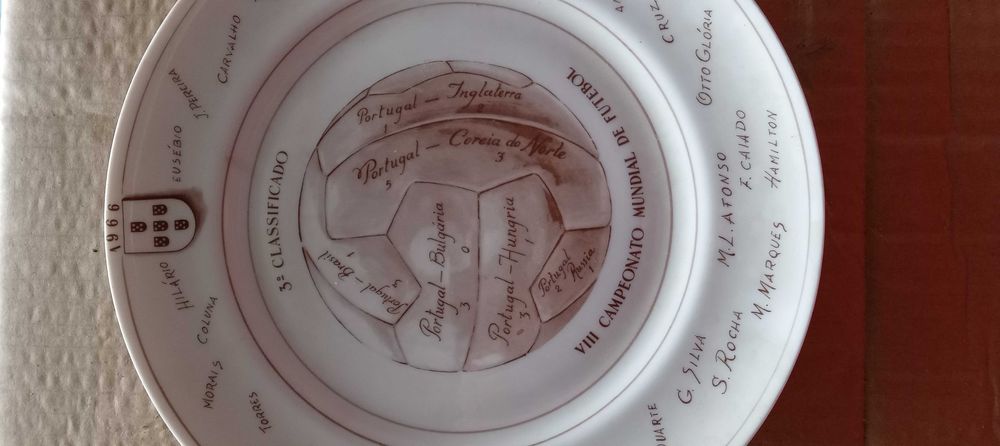 1966
3º CLASSIFICADO
VIII CAMPEONATO MUNDIAL DE FUTEBOL
Portugal – Inglaterra
1 2
Portugal – Coreia do Norte
5 3
Portugal – Brasil
3 1
Portugal – Bulgária
3 0
Portugal – Hungria
3 1
Portugal Russia
2 1
CARVALHO
J. PEREIRA
EUSÉBIO
HILÁRIO
COLUNA
MORAIS
TORRES
CRUZ
OTTO GLÓRIA
M.L. AFONSO
F. CAIADO
HAMILTON
M. MARQUES
S. ROCHA
G. SILVA